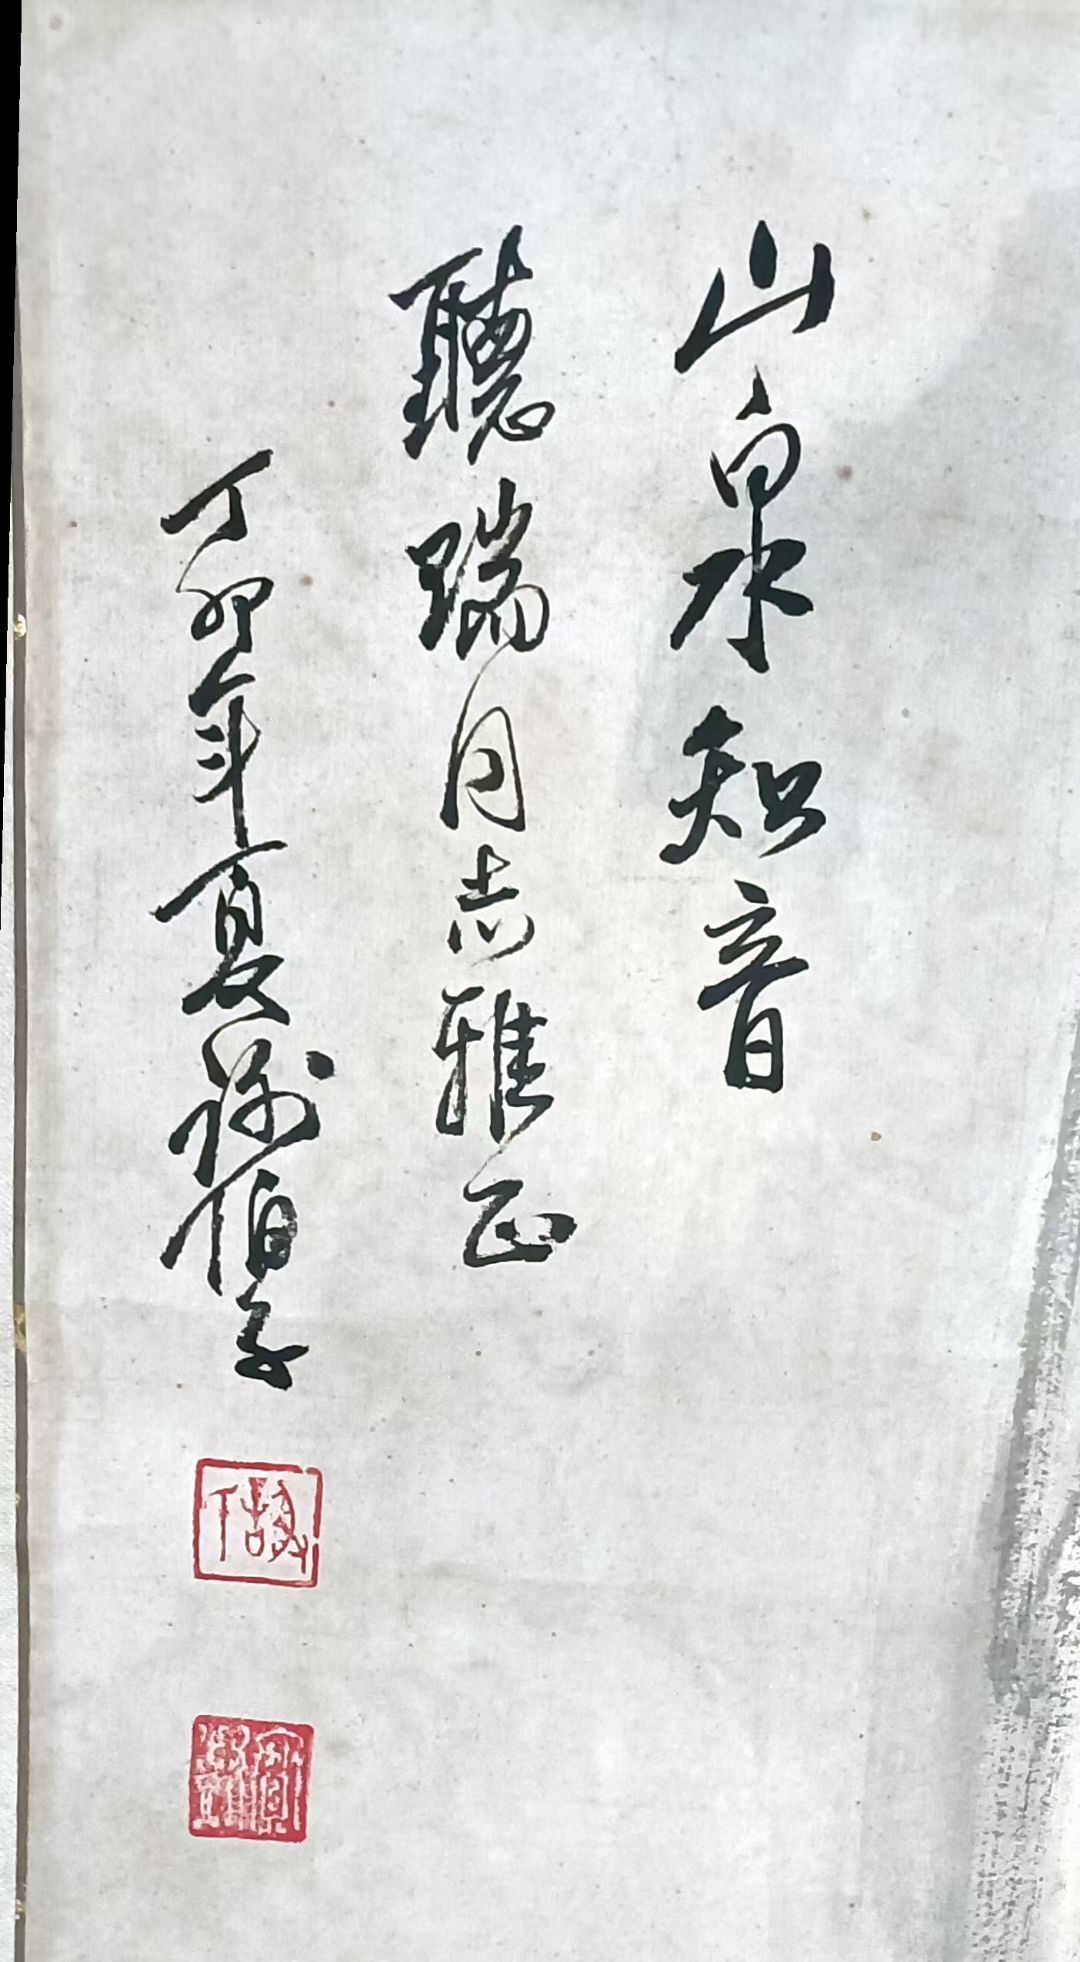 山泉知音
聽瑞同志雅正
丁卯年夏謝伯子